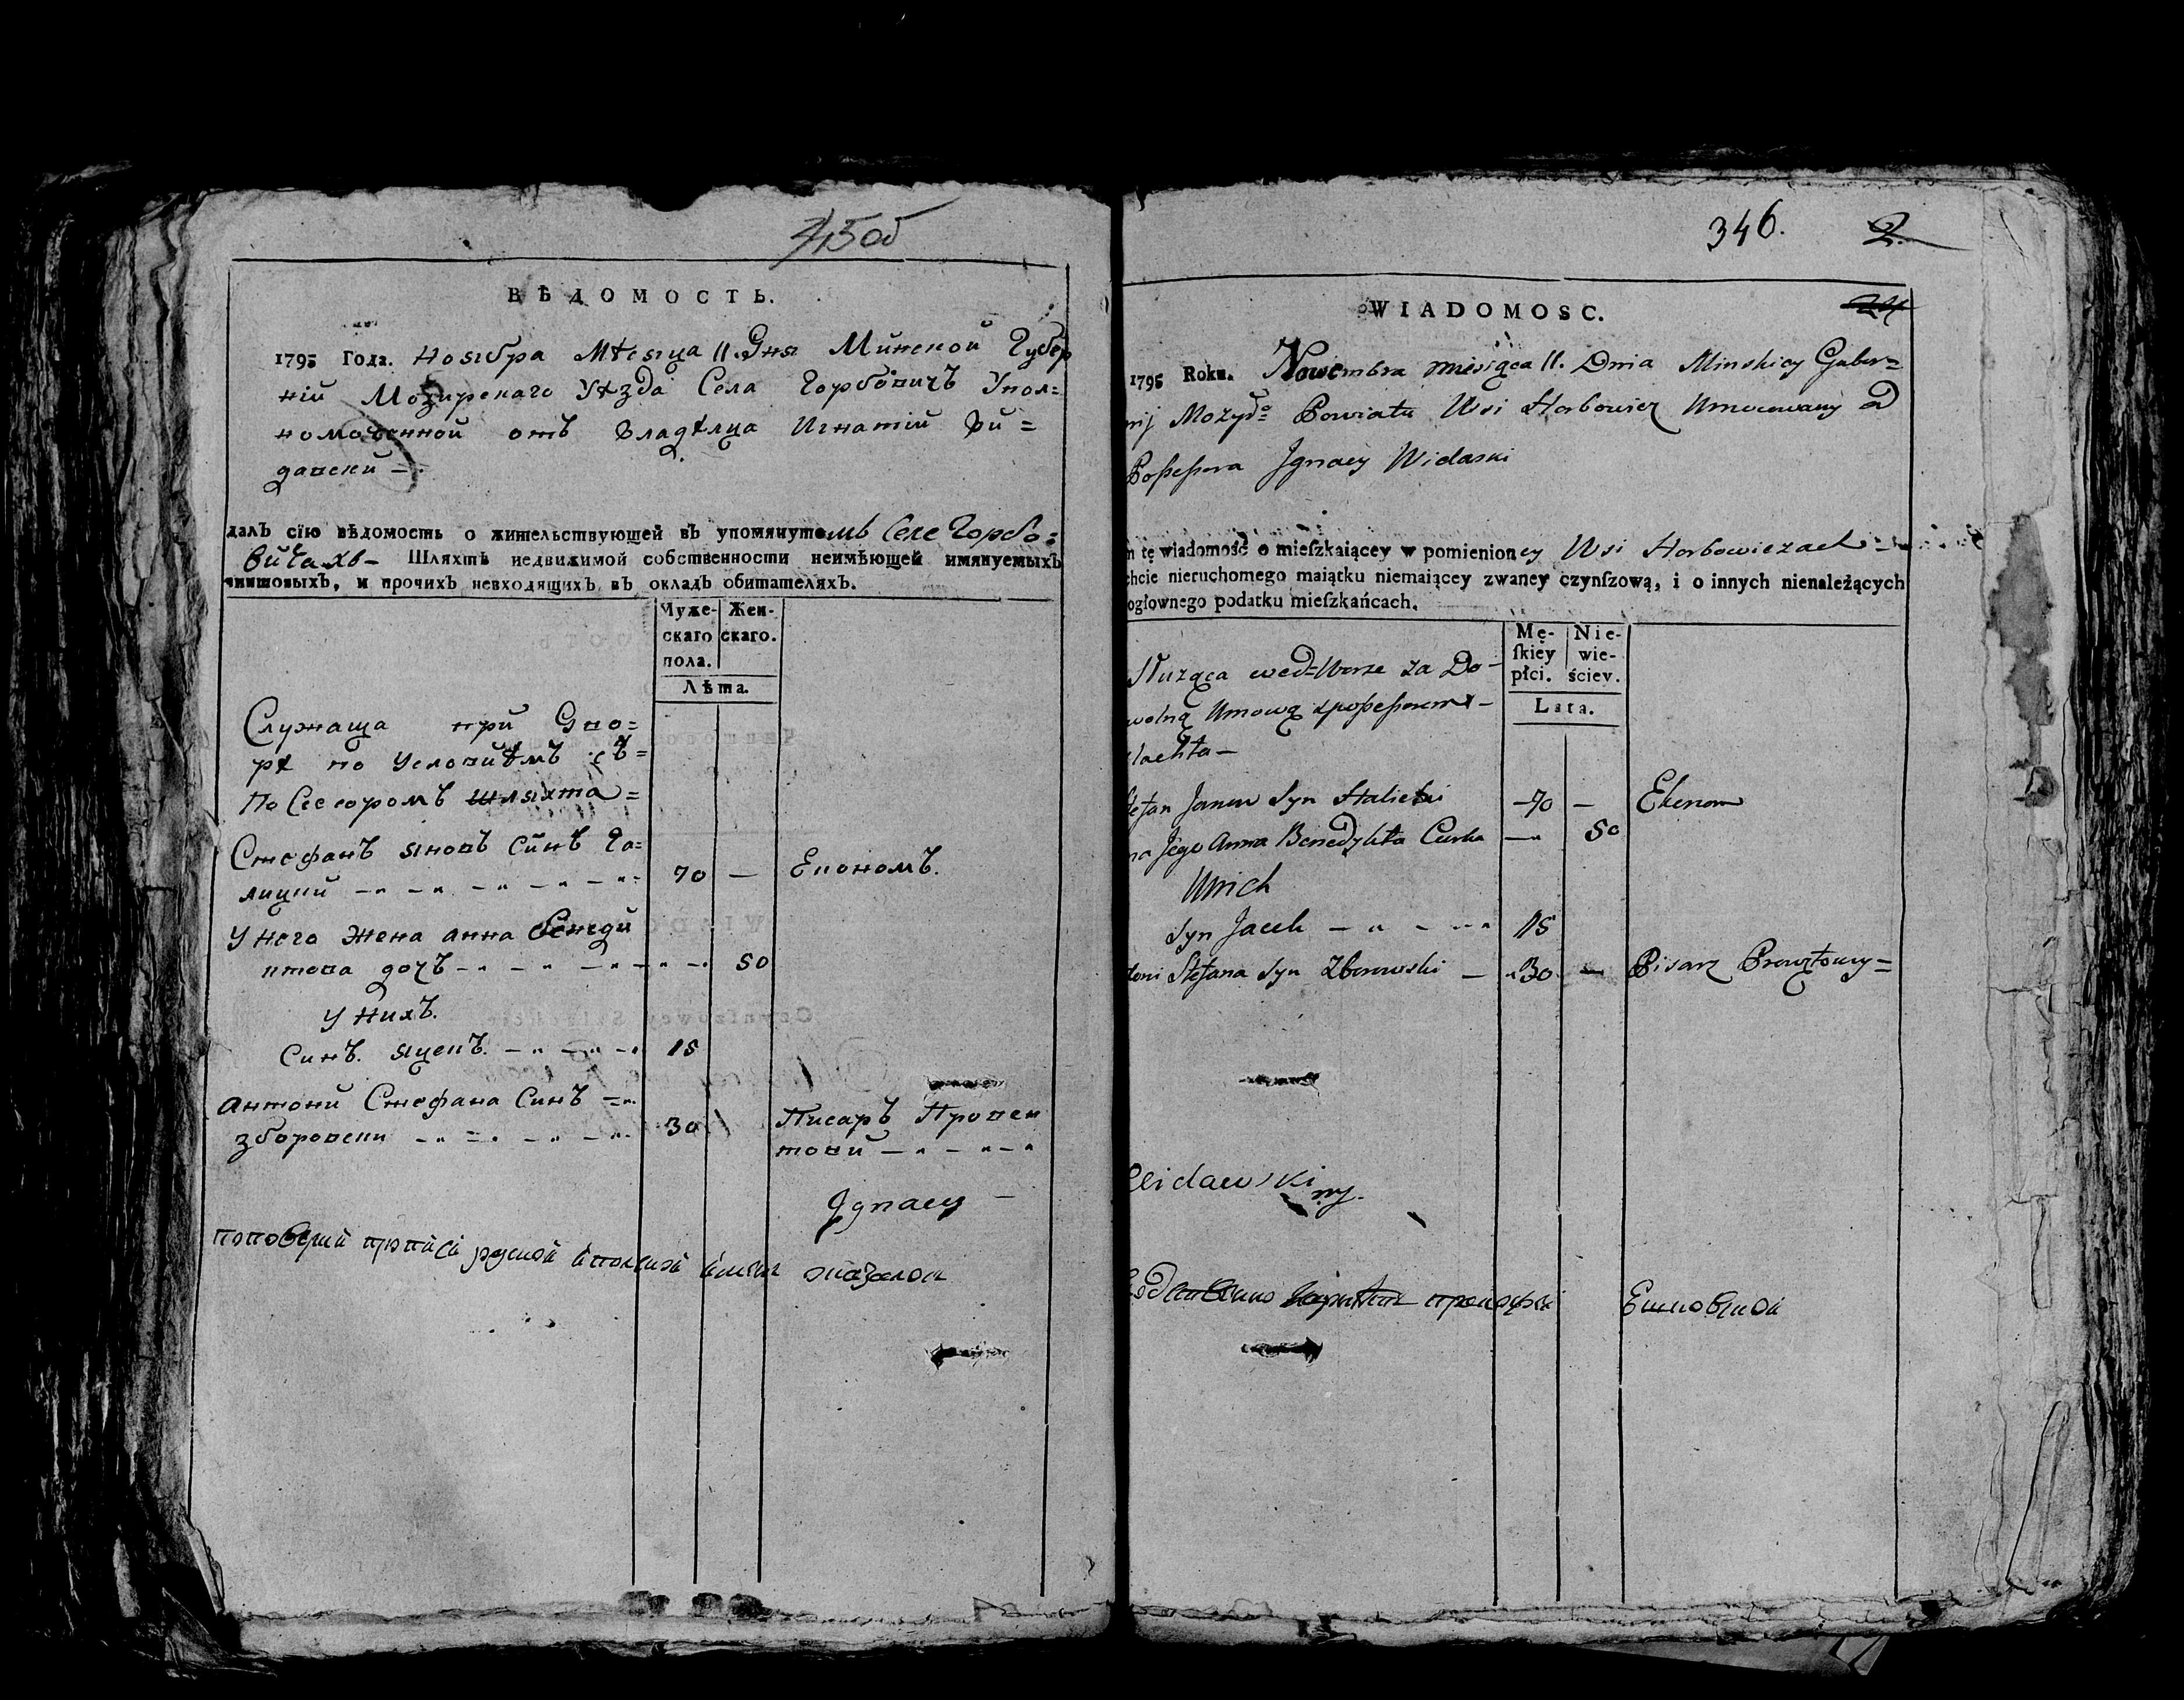 345об
ВѢДОМОСТЬ.
1795 Года. Ноября Мѣсяца 11. Дня Минской Губер
ній Мозирскаго Уѣзда Села Горбовичъ Упол=
номоченной отъ Владѣлца Игнатій Ви=
давски
далъ сїю вѣдомость о жительствующей въ упомянутомъ Селе Горбо=
вичахъ Шляхтѣ недвижимой собственности неимѣющей имянуемыхъ
чиншовыхъ, и прочихъ невходящихъ въ окладъ обитателяхъ.
Муже-скаго пола. Жен-скаго.
Лѣта.
Служаща при Дво=
рѣ по Условиѣмъ съ=
По Сесоромъ шляхта=
Стефанъ Яновъ Синъ Га=
лицки 70 — Економъ.
У него Жена анна Бенеди
ктова дочъ 50
У Нихъ.
Синъ. Яцекъ. 15
Антони Стефана Синъ
зборовски 30 Писаръ Провен
тови
Ignacy
346. 2.
24
WIADOMOSC.
1795 Roku. Nowembra miesiąca 11. Dnia Minskiey Guber=
nij Mozyro Powiatu Wsi Horbowicz Umocowany od
Possessora Jgnacy Widaski
m tę wiadomość o mieſzkaiącey w pomienioney Wsi Horbowiczach
chcie nieruchomego maiątku niemaiącey zwaney czynſzową, i o innych nienależących
ogłownego podatku mieſzkańcach.
Mę-ſkiey płci. Nie-wie-ściey.
Lata.
Służąca we dWorze za Do-
wolną Umową zpossessorem
lachta
Stefan Janow Syn Halicki 70 — Ekonom
na Jego Anna Benedykta Curka — 50
U nich
Syn Jacek 15
toni Stefana Syn Zborowski — 30 — Pisarz Prowętowy=
Widawski